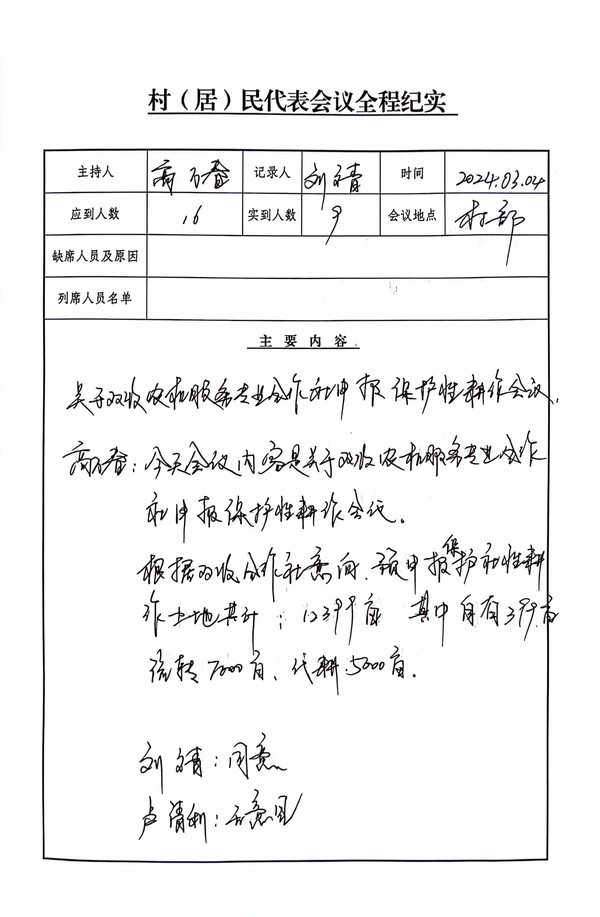 村（居）民代表会议全程纪实
主持人 高万春 记录人 刘靖 时间 2024.03.04
应到人数 16 实到人数 9 会议地点 村部
缺席人员及原因
列席人员名单
主要内容
关于双收农机服务专业合作社申报保护性耕作会议.
高万春：今天会议内容是关于双收农机服务专业合作
社申报保护性耕作会议。
根据双收合作社意向、预申报保护社性耕
作土地共计：12399亩 其中自有399亩
流转7000亩、代耕5000亩.
刘靖：同意
卢清利：无意见